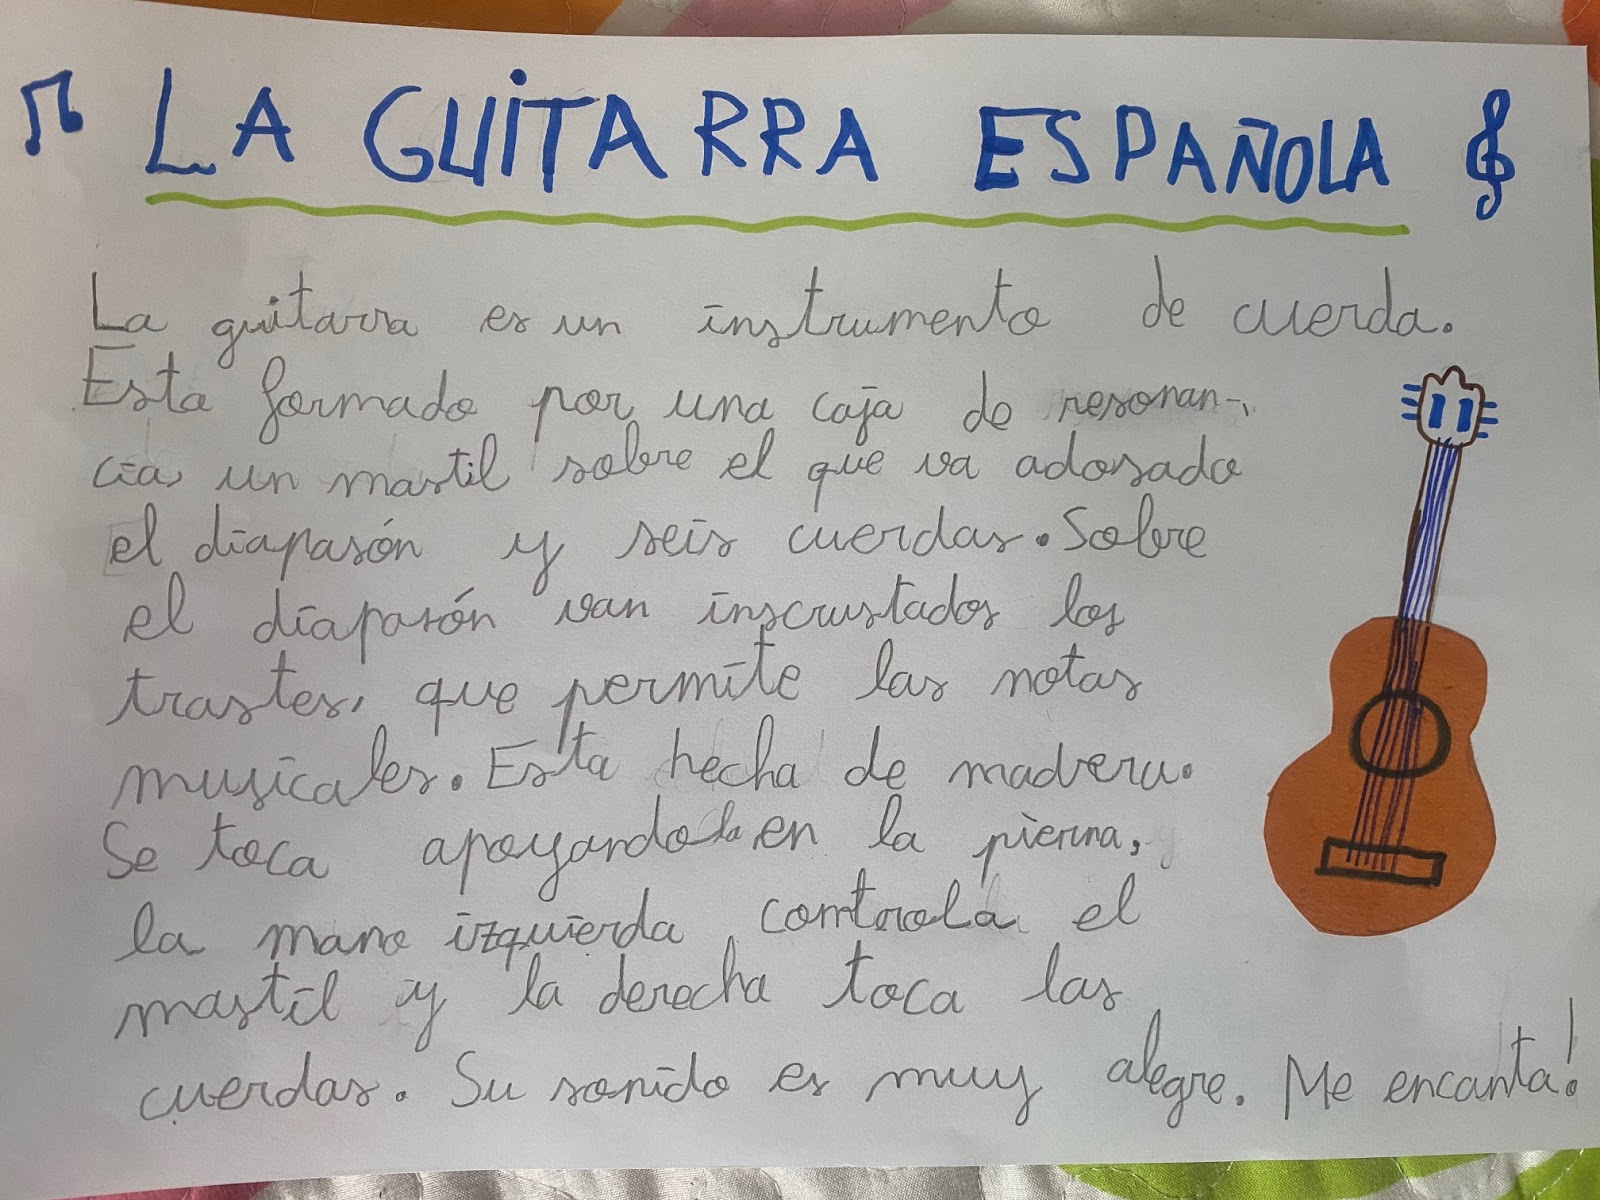 LA GUITARRA ESPAÑOLA
La guitarra es un instrumento de cuerda.
Esta formado por una caja de resonan-
cia, un mastil sobre el que va adosado
el diapasón y seis cuerdas. Sobre
el diapasón van inscrustados los
trastes, que permite las notas
musicales. Esta hecha de madera.
Se toca apoyandola en la pierna,
la mano izquierda controla el
mastil y la derecha toca las
cuerdas. Su sonido es muy alegre. Me encanta!